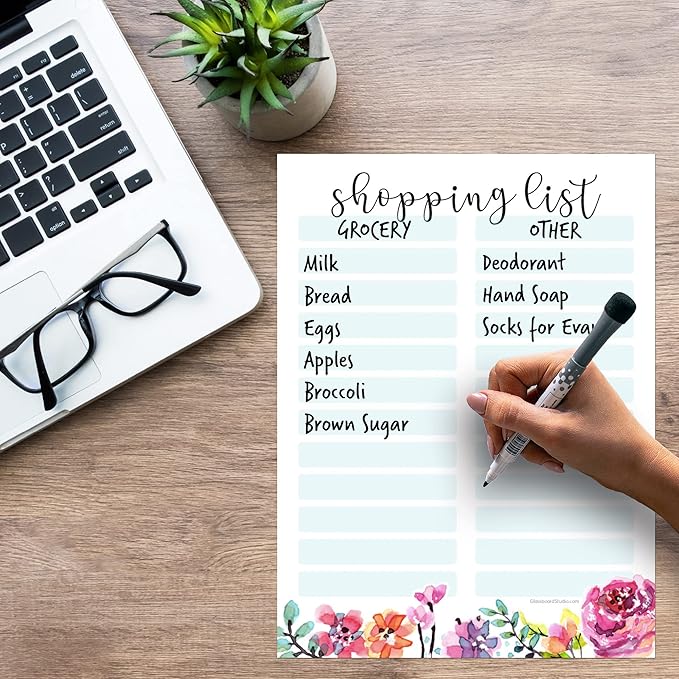 shopping list
GROCERY
Milk
Bread
Eggs
Apples
Broccoli
Brown Sugar
OTHER
Deodorant
Hand Soap
Socks for Evan
delete
enter
return
shift
option
fn